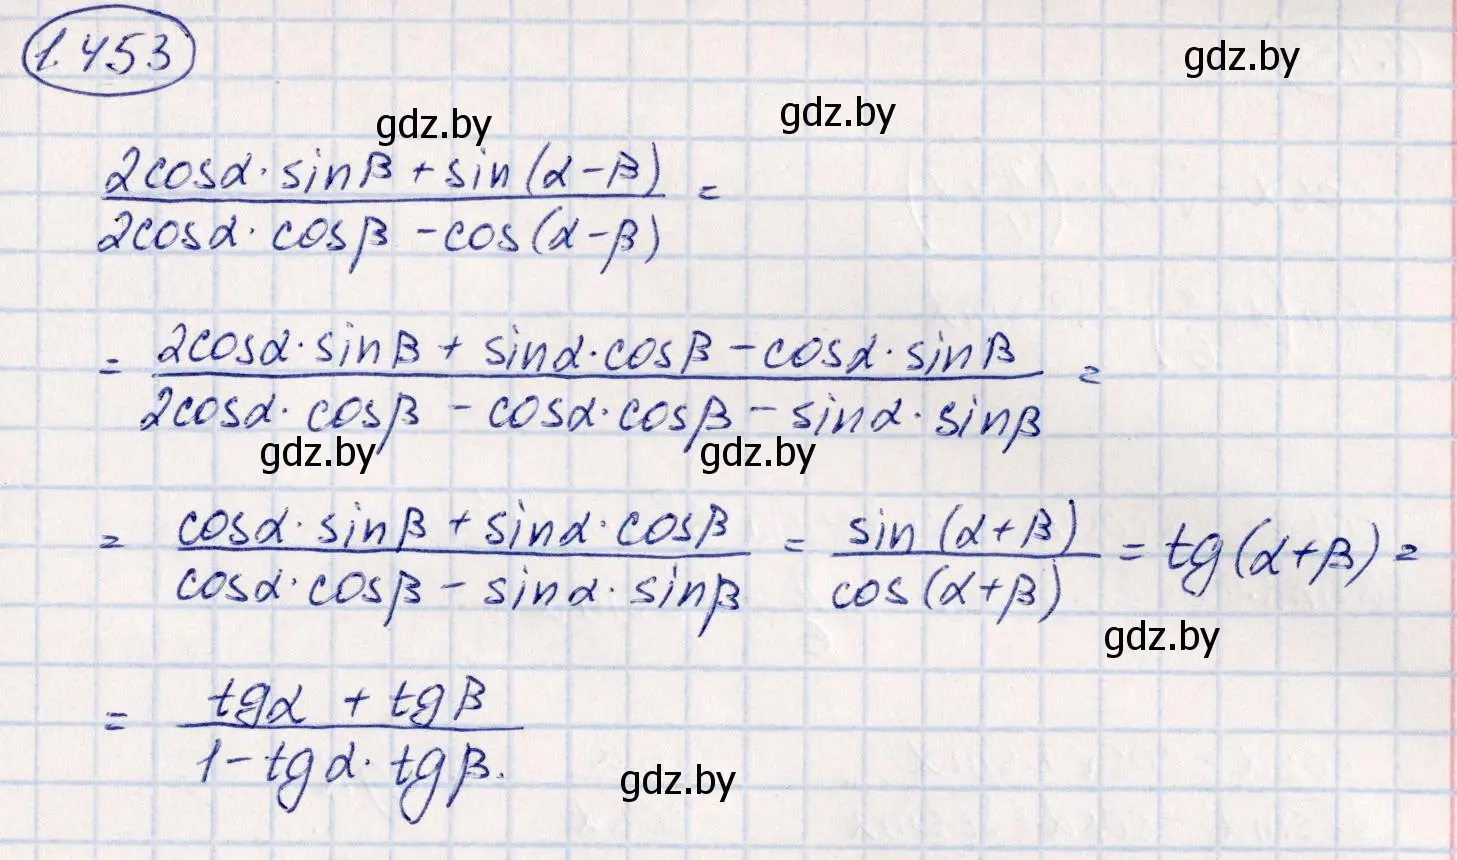 1.453
gdz.by
gdz.by
gdz.by
2cosα·sinβ+sin(α-β) =
2cosα·cosβ-cos(α-β)
= 2cosα·sinβ+sinα·cosβ-cosα·sinβ =
2cosα·cosβ-cosα·cosβ-sinα·sinβ
gdz.by
gdz.by
= cosα·sinβ+sinα·cosβ = sin(α+β) = tg(α+β) =
cosα·cosβ-sinα·sinβ cos(α+β)
gdz.by
= tgα + tgβ
1-tgα·tgβ.
gdz.by